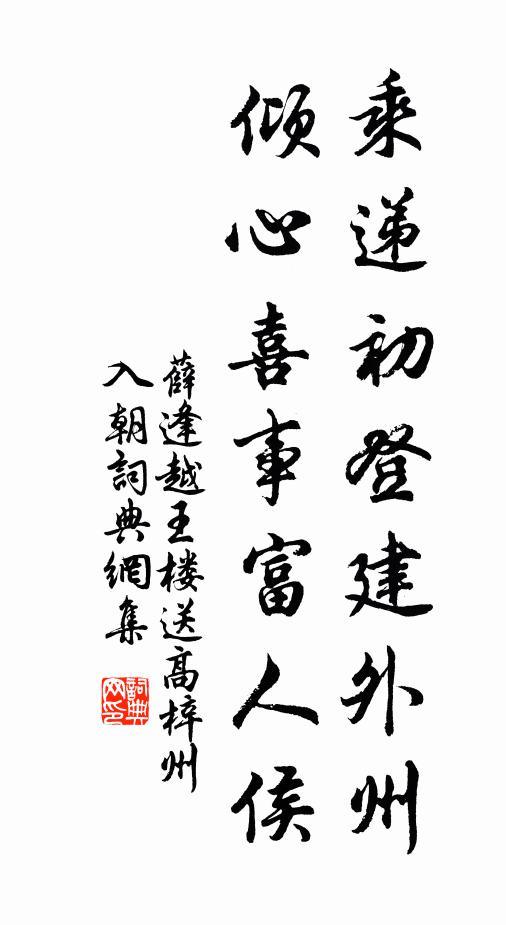 乘遞初登建外州
傾心喜事富人侯
薛逢越王楼送高梓州
入朝詞典網集
詞典網印